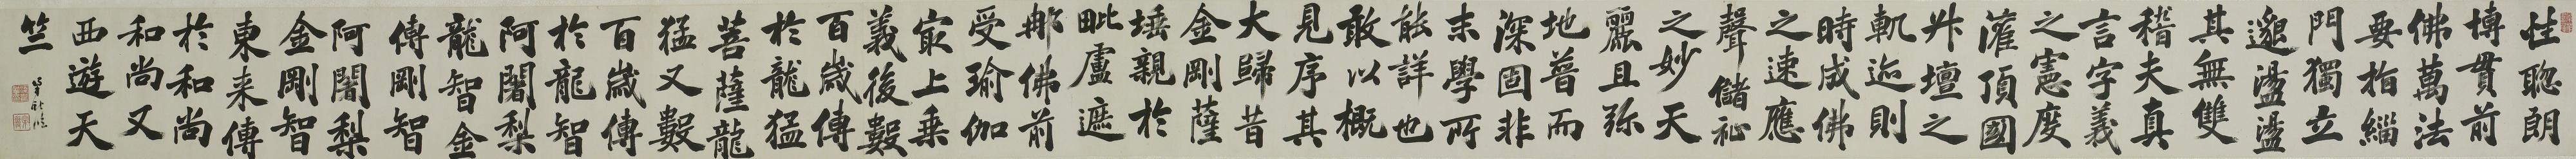 性聡朗
博貫前
佛萬法
要指緇
門獨立
邈盪盪
其無雙
稽夫真
言字義
之憲度
灌頂國
升壇之
軌迹則
時成佛
之速應
聲儲祉
之妙天
麗且弥
地普而
深固非
末學所
能詳也
敢以概
見序其
大歸昔
金剛薩
埵親於
毗盧遮
那佛前
受瑜伽
最上乗
義後數
百歲傳
於龍猛
菩薩龍
猛又數
百歲傳
於龍智
阿闍梨
龍智金
傳剛智
阿闍梨
金剛智
東来傳
於和尚
和尚又
西遊天
竺